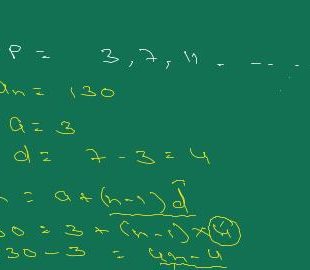 P = 3, 7, 11 - -- -
an = 130
a = 3
d = 7 - 3 = 4
n = a + (n-1) d
30 = 3 + (n-1) × 4
30 - 3 = 4n - 4